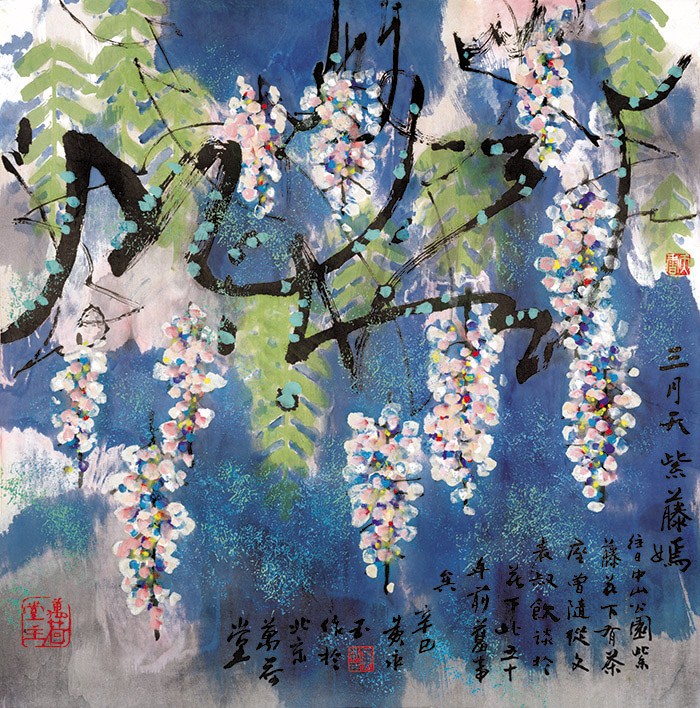 三月天紫藤嫣
往日中山公園紫
藤花下有茶
座曾隨從文
表叔飲談於
花下此五十
年前舊事
矣
辛巳
黃永
玉
作於
北京
萬荷
堂
萬荷堂主